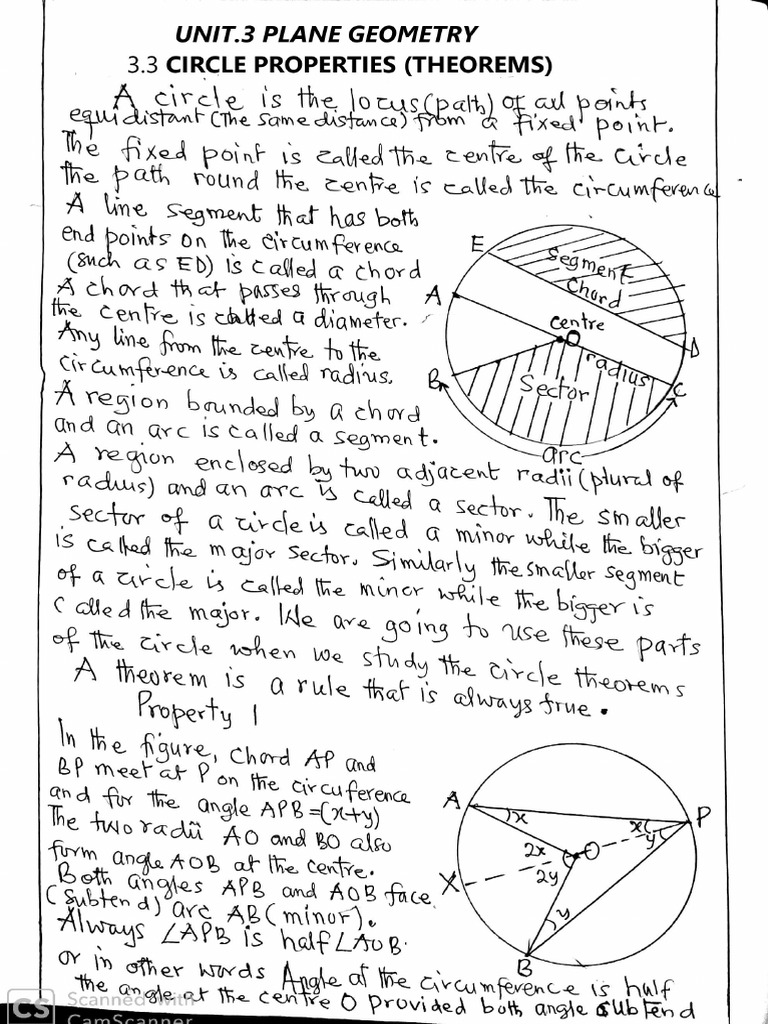 UNIT.3 PLANE GEOMETRY
3.3 CIRCLE PROPERTIES (THEOREMS)
A circle is the locus (path) of all points
equidistant (The same distance) from a fixed point.
The fixed point is called the centre of the circle
the path round the centre is called the circumference
A line segment that has both
end points on the circumference
(such as ED) is called a chord
A chord that passes through
the centre is called a diameter.
Any line from the centre to the
circumference is called radius.
A region bounded by a chord
and an arc is called a segment.
E
Segment
Chord
A
centre
O
D
radius
B
Sector
C
arc
A region enclosed by two adjacent radii (plural of
radius) and an arc is called a sector. The smaller
sector of a circle is called a minor while the bigger
is called the major sector. Similarly the smaller segment
of a circle is called the minor while the bigger is
called the major. We are going to use these parts
of the circle when we study the circle theorems
A theorem is a rule that is always true.
Property 1
In the figure, Chord AP and
BP meet at P on the circuference
and for the angle APB=(x+y)
The two radii AO and BO also
form angle AOB at the centre.
Both angles APB and AOB face
(subtend) arc AB (minor).
Always ∠APB is half ∠AOB.
A
x
x
P
y
2x
O
2y
X
y
B
or in other words Angle at the circumference is half
the angle at the centre O provided both angle subtend
CS Scanned with
CamScanner